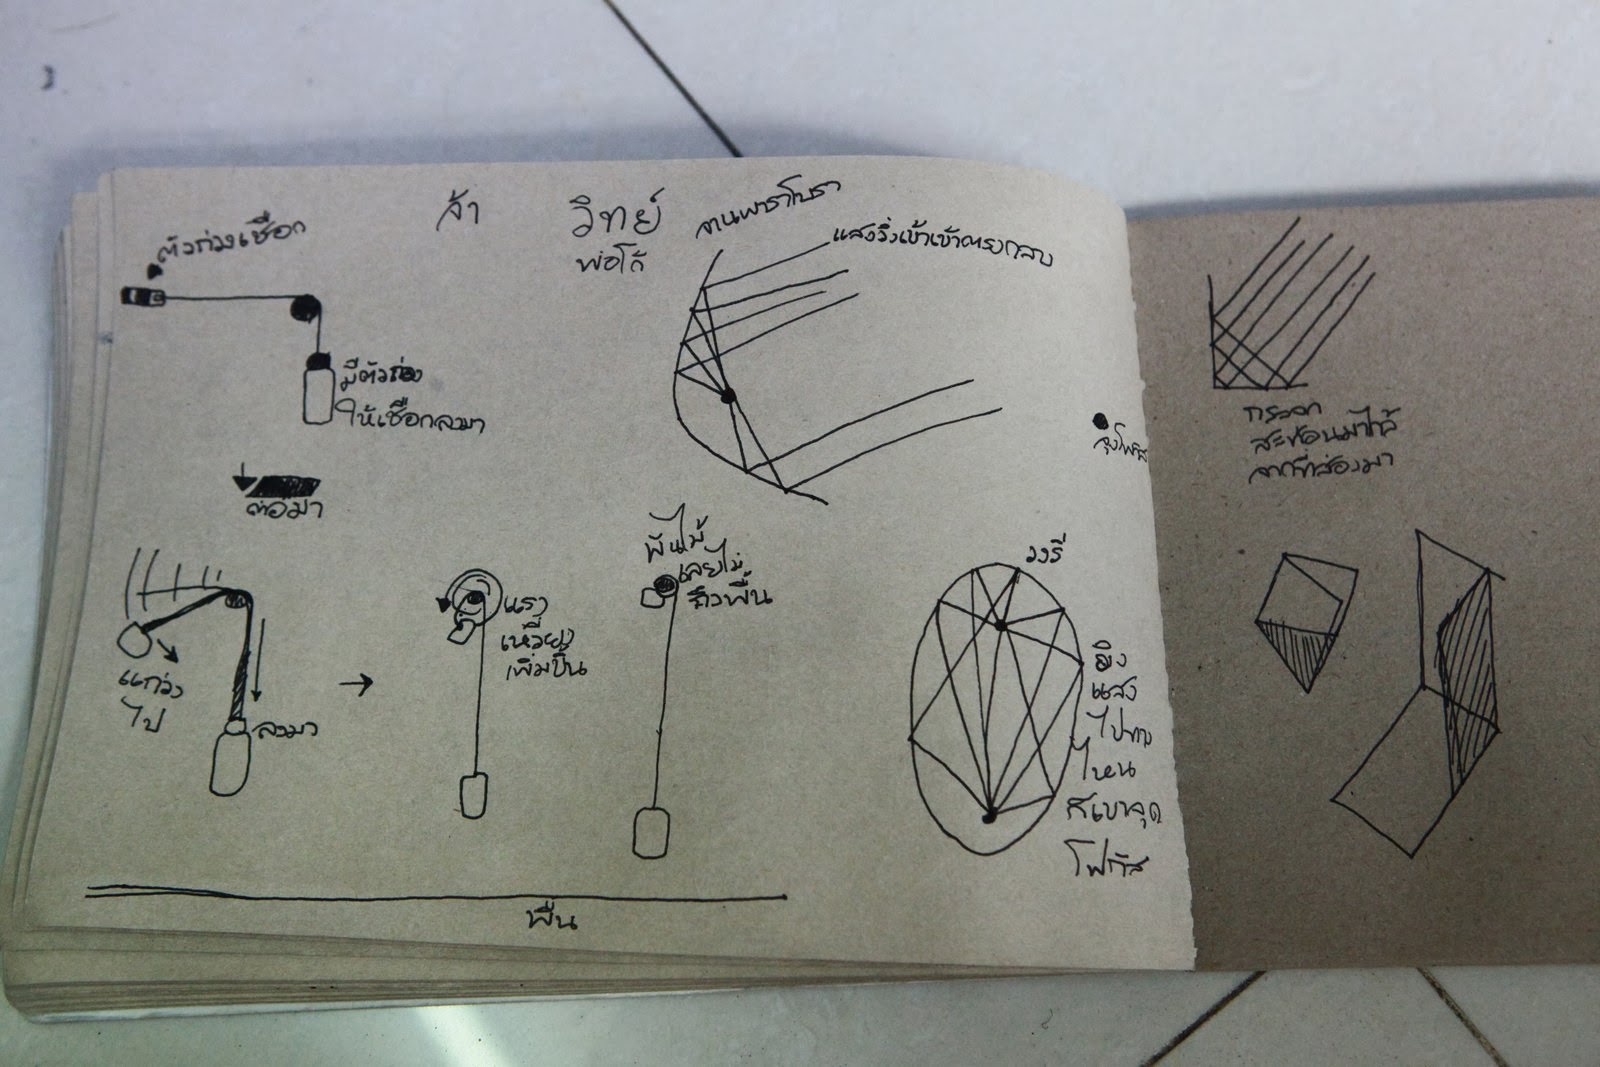 ล้า
วิทย์
พ่อโก้
จานพาราโบรา
แสงวิ่งเข้า
ตัวถ่วงเชือก
มีตัวถ่วง
ให้เชือกลงมา
ต่อมา
แกว่ง
ไป
ลงมา
แรง
เหวี่ยง
เพิ่มขึ้น
พันไม้
เลยไม่
ถึงพื้น
พื้น
วงรี
ยิง
แสง
ไปทาง
ไหน
โฟกัส
กระจก
สะท้อนมาใกล้
จากที่ส่องมา